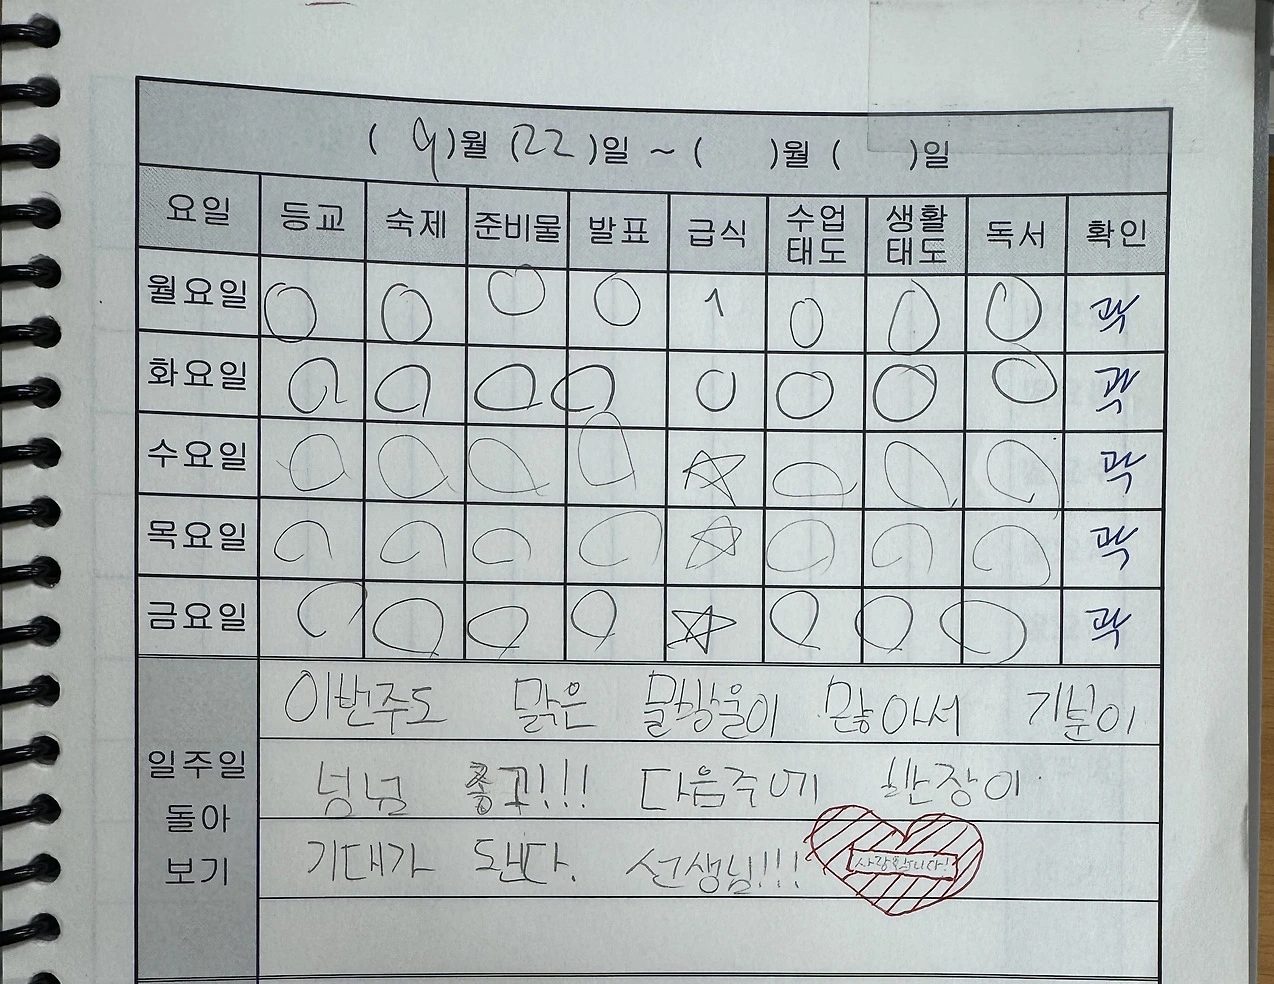 ( 9 )월 ( 22 )일 ~ ( )월 ( )일
요일 등교 숙제 준비물 발표 급식 수업 태도 생활 태도 독서 확인
월요일 1 곽
화요일 곽
수요일 곽
목요일 곽
금요일 곽
일주일 돌아 보기
이번주도 맑은 물방울이 많아서 기분이
넘넘 좋고!!! 다음주에 한장이
기대가 된다. 선생님!!! 사랑합니다!